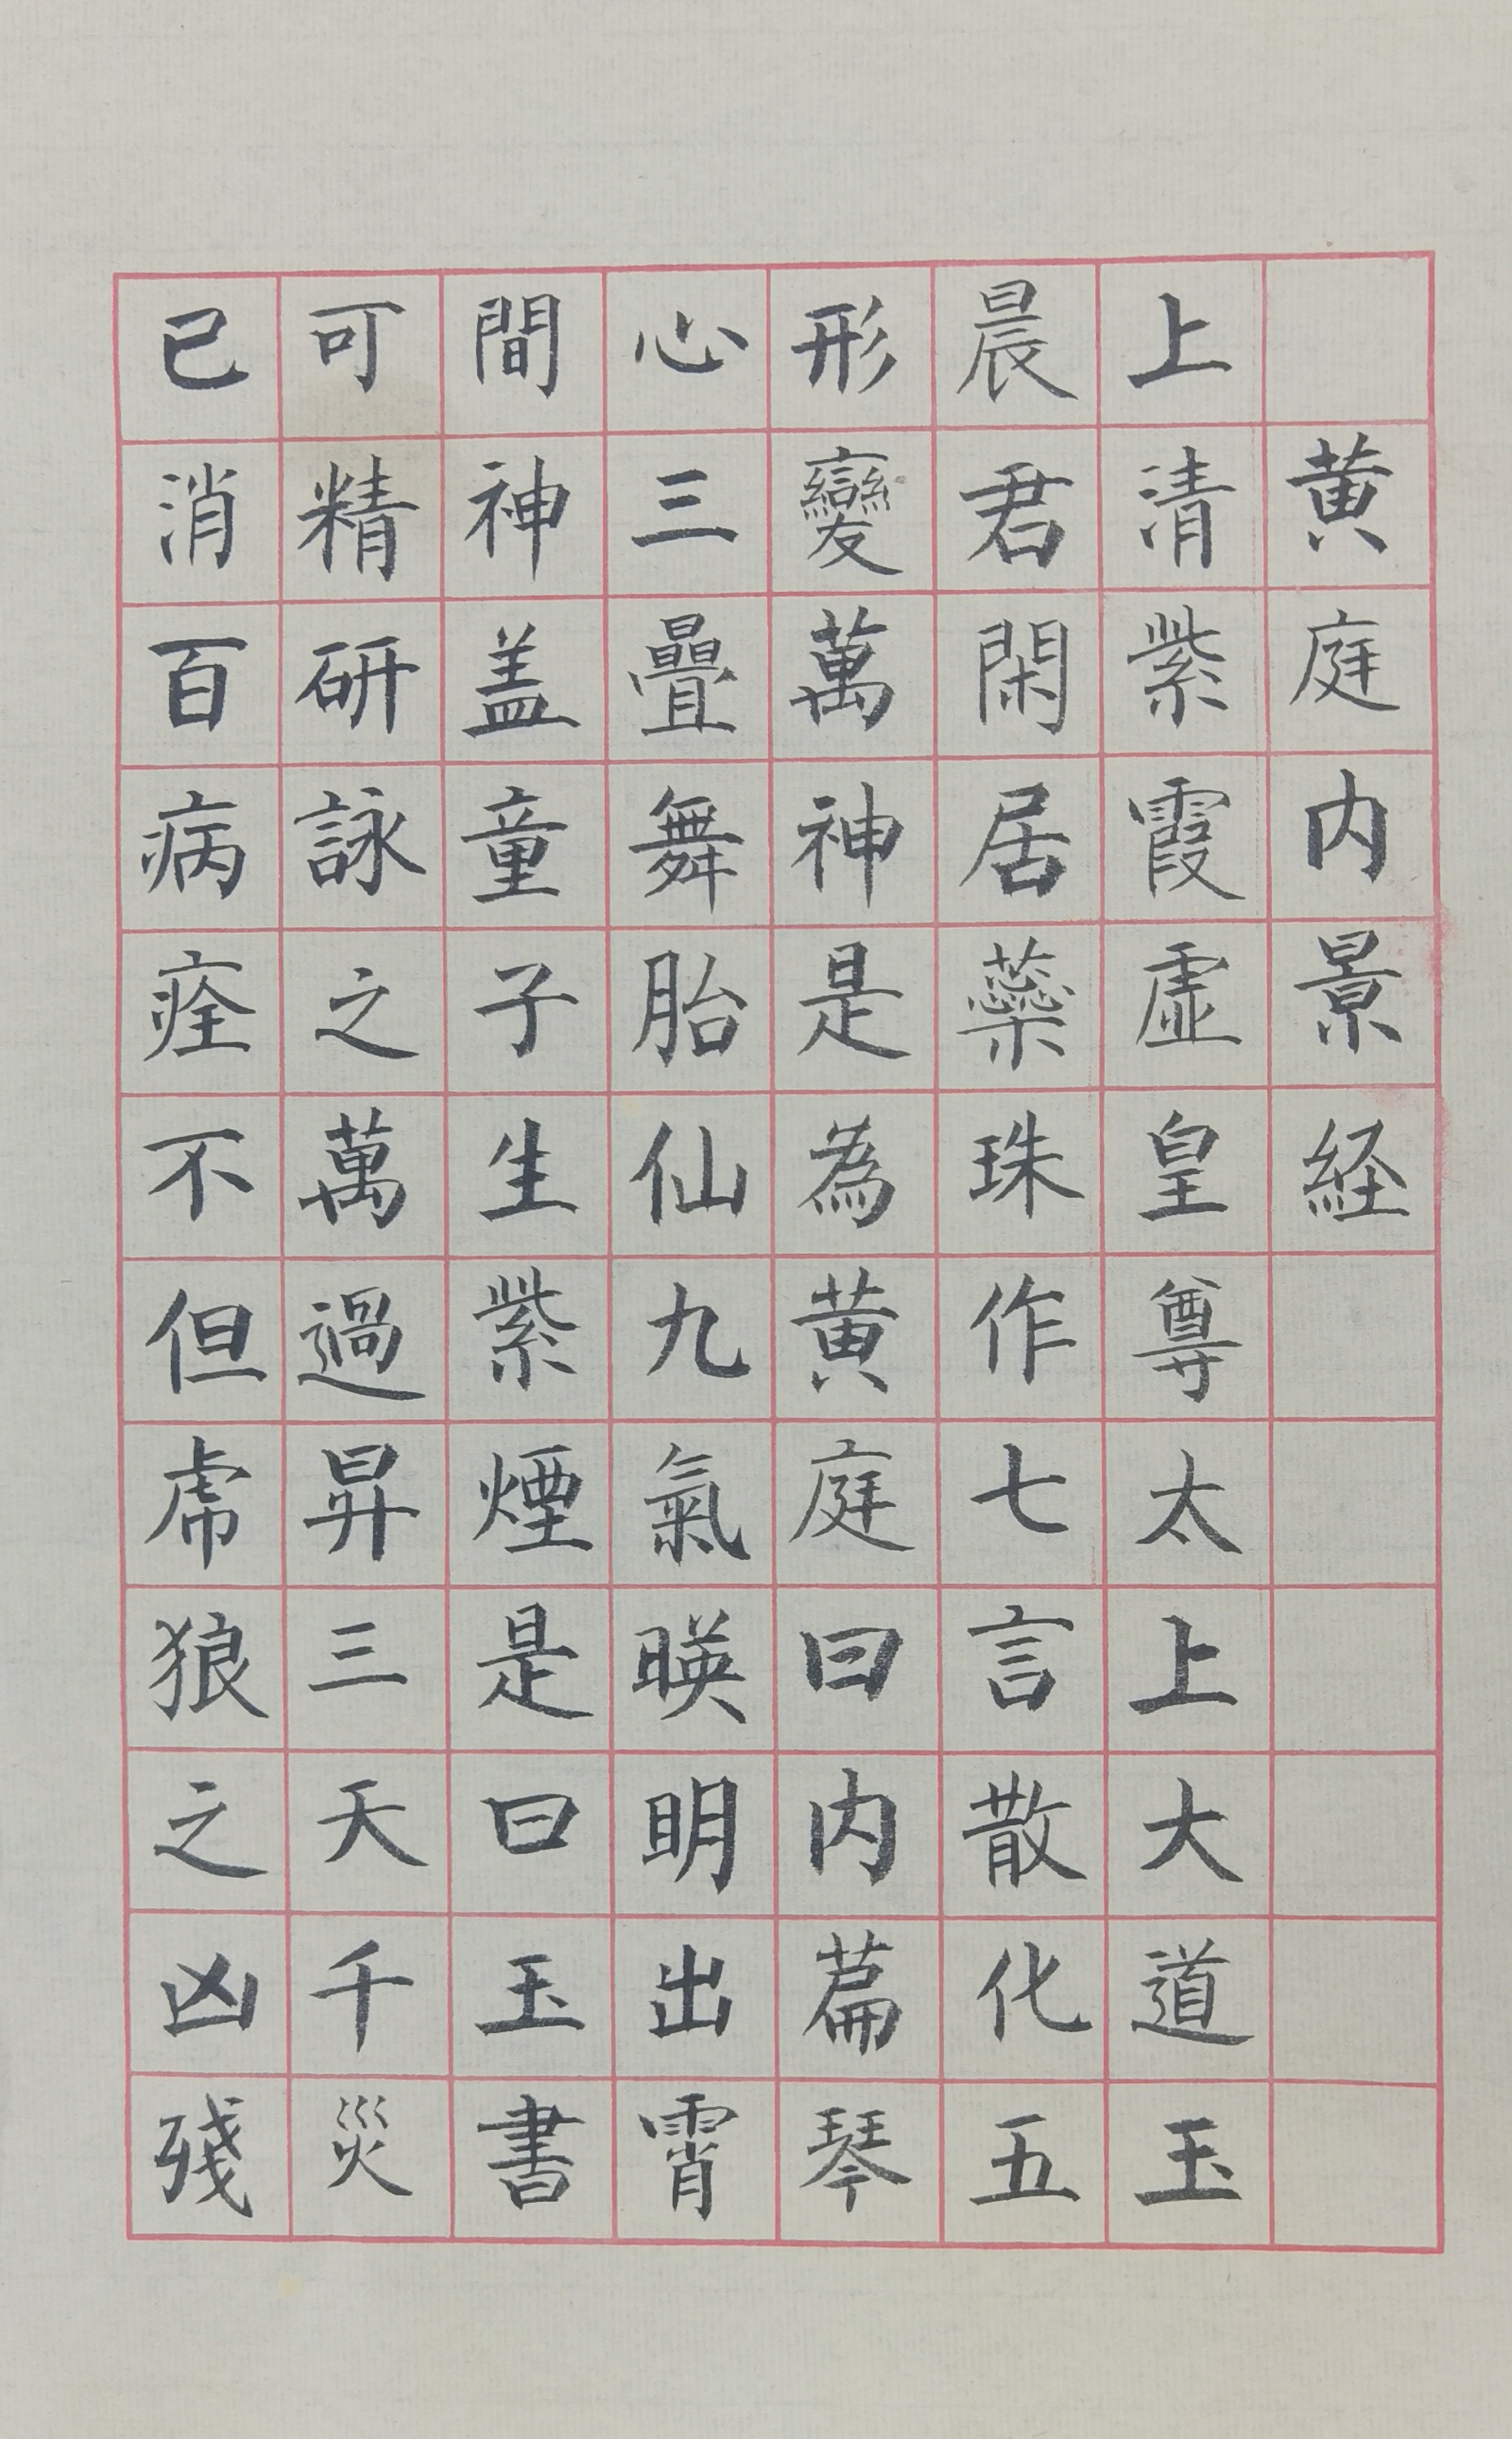 黄庭内景経
上清紫霞虚皇尊太上大道玉
晨君閑居蘂珠作七言散化五
形變萬神是為黄庭曰内篇琴
心三疊舞胎仙九氣暎明出霄
間神盖童子生紫煙是曰玉書
可精研詠之萬過昇三天千災
已消百病痊不但虎狼之凶殘